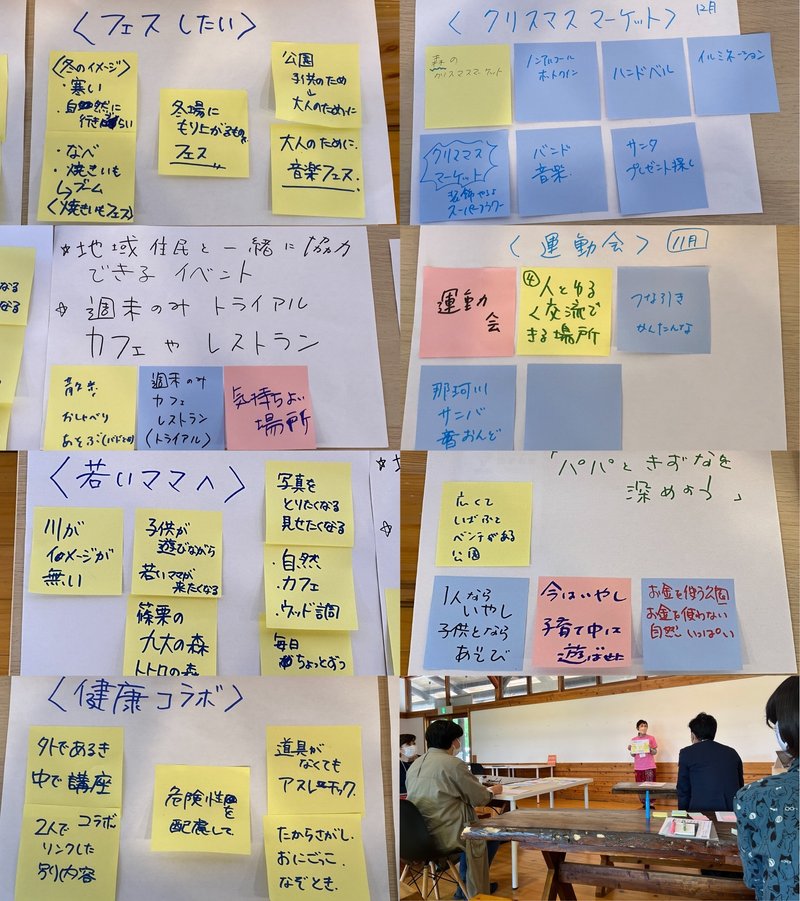 〈フェスしたい〉
〈冬のイメージ〉
・寒い
・自然に
行きづらい
・なべ
・焼きいも
ブーム
〈焼きいもフェス〉
冬場に
もり上がるもので
フェス
公園
子供のため
↓
大人のために
大人のために
音楽フェス.
〈クリスマスマーケット〉
12月
森の
クリスマスマーケット
ノンアルコール
ホットワイン
ハンドベル
イルミネーション
クリスマス
マーケット
装飾やるよ
スーパーフラワー
バンド
音楽.
サンタ
プレゼント探し
☆地域住民と一緒に協力
できるイベント
☆週末のみトライアル
カフェやレストラン
散歩.
おしゃべり
あそぶ
週末のみ
カフェ
レストラン
(トライアル)
気持ちよい
場所
〈運動会〉
11月
運動
会
④人とゆる
く交流で
きる場所
つな引き
かんたんな
那珂川
サンバ
音おんど
〈若いママへ〉
川が
イメージが
無い
子供が
遊びながら
若いママが
来たくなる
篠栗の
九大の森
トトロの森
写真を
とりたくなる
見せたくなる
・自然
・カフェ
・ウッド調
毎日
ちょっとずつ
「パパときずなを
深めよう」
広くて
いばしょと
ベンチがある
公園
1人なら
いやし
子供となら
あそび
今はいやし
子育て中に
遊ばせた
お金を使う公園
お金を使わない
自然いっぱい
〈健康コラボ〉
外であるき
中で講座
2人でコラボ
リンクした
別内容
危険性を
配慮して
道具が
なくても
アスレチック.
たからさがし.
おにごっこ.
なぞとき.